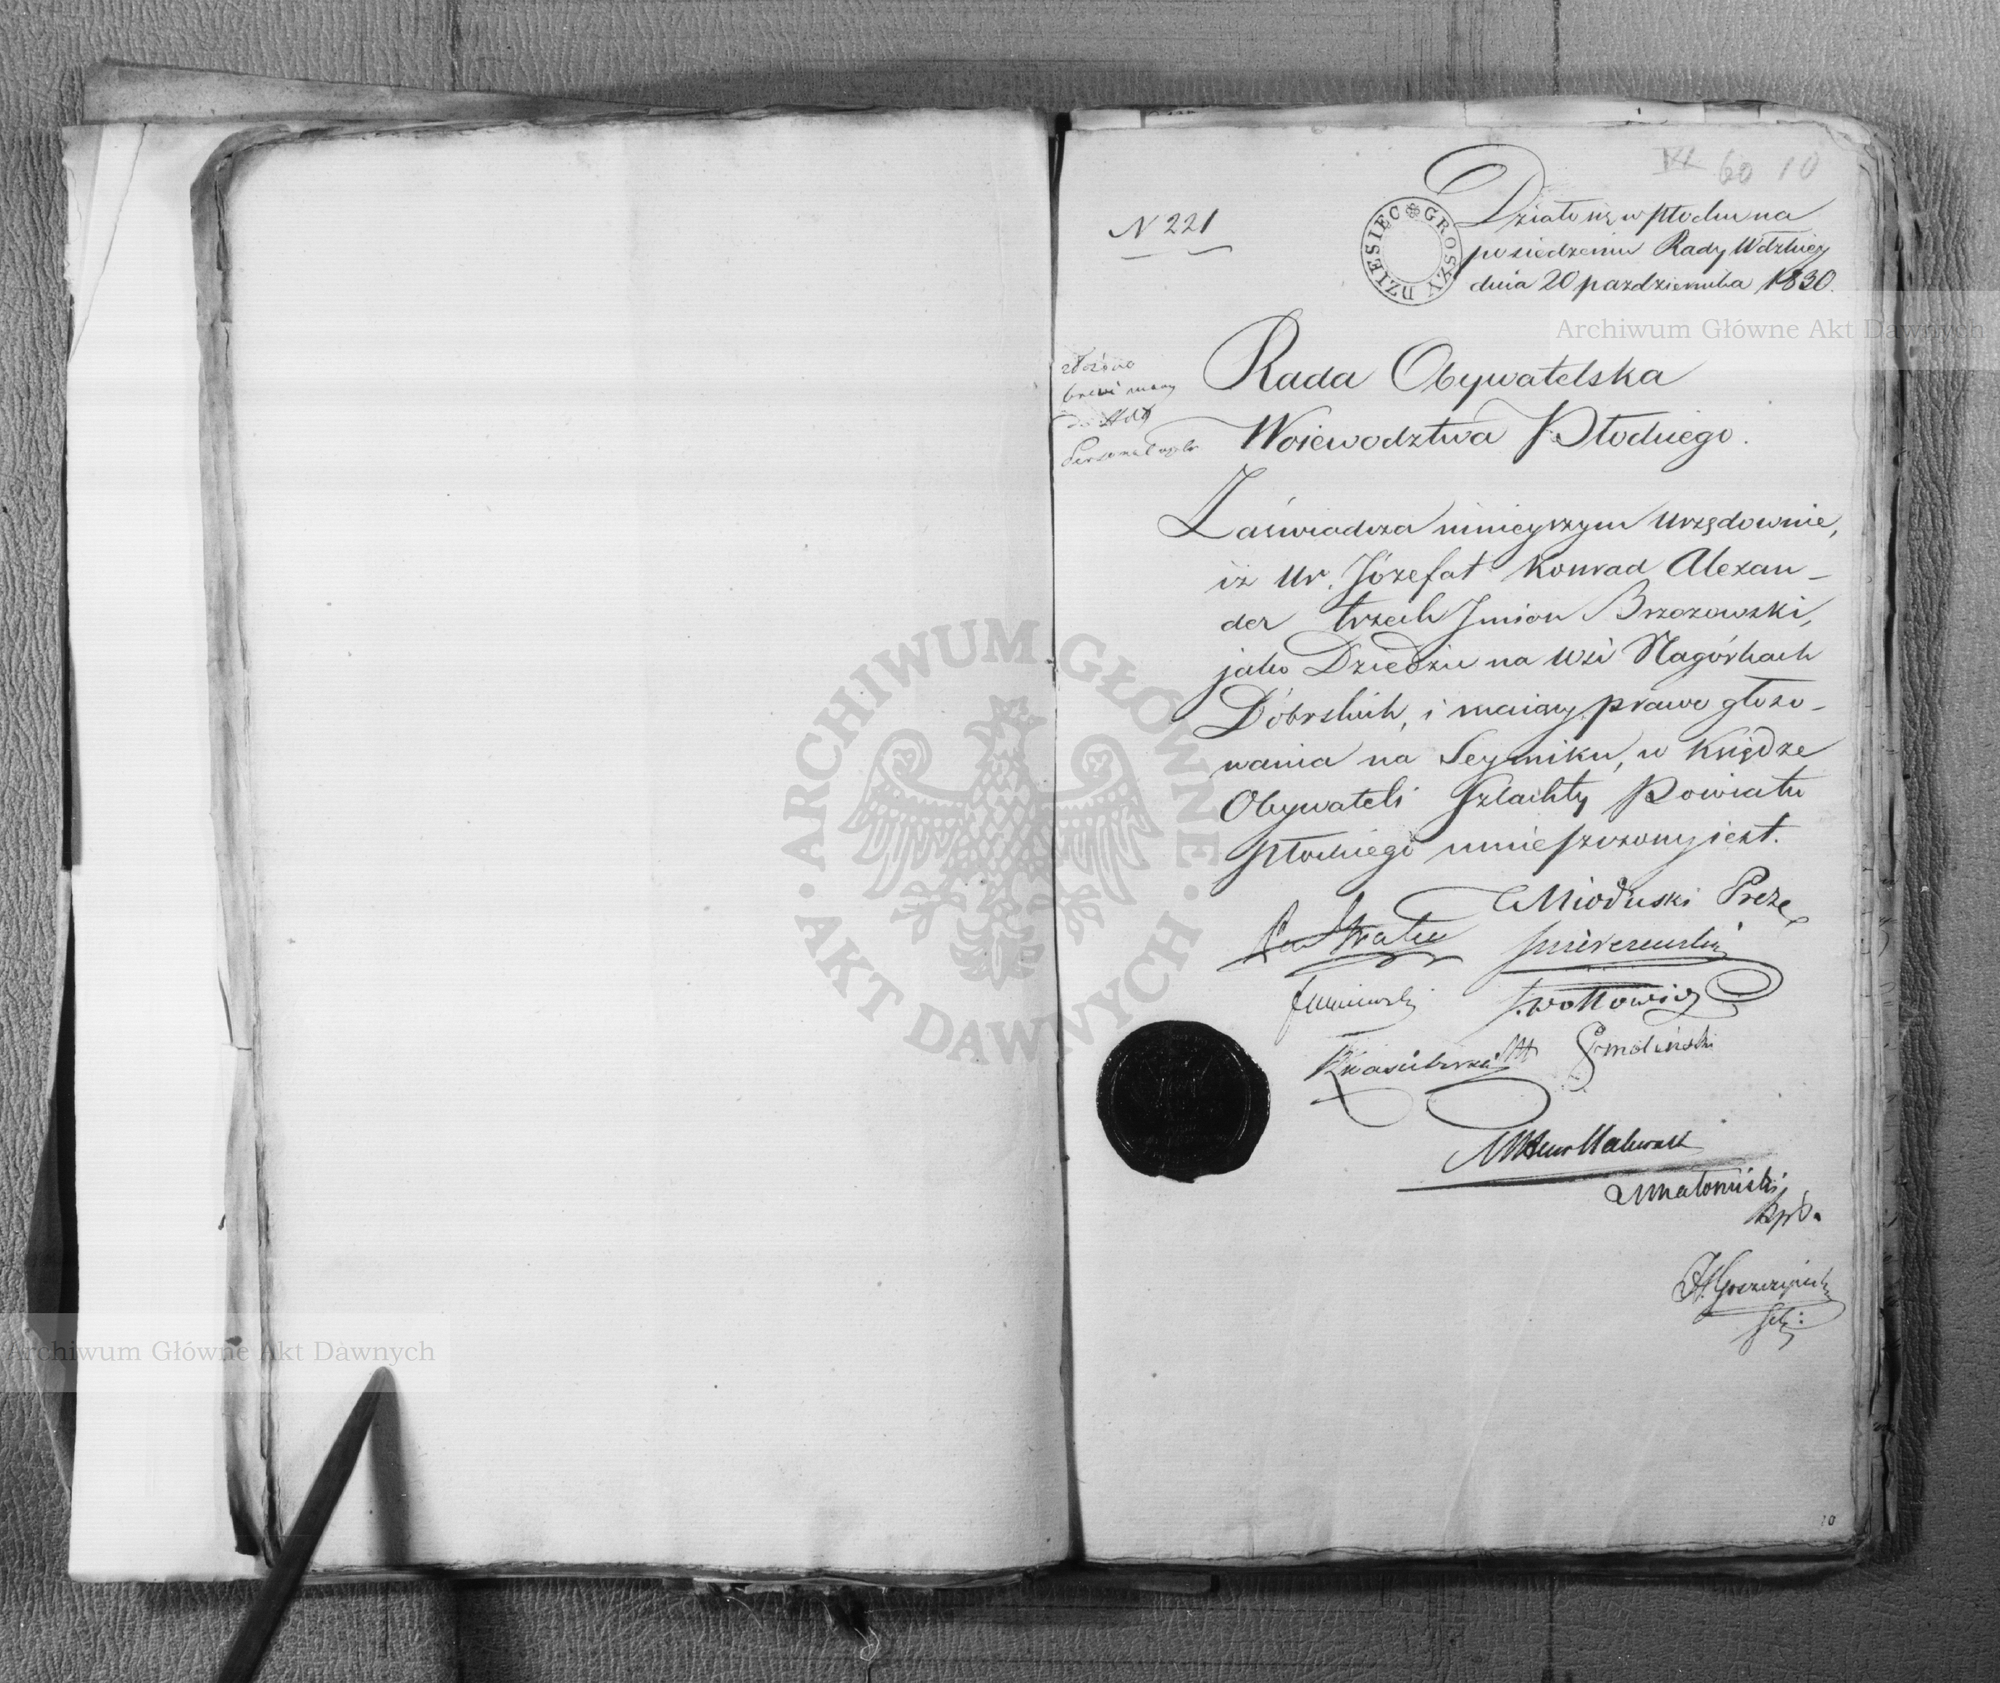 VI 60 10
N 221
DZIESIEC GROSZY
Działo się w Płocku na
posiedzeniu Rady Wdzkiey
dnia 20 pazdziernika 1830.
Archiwum Główne Akt Dawnych
złożono
brevi manu
do Akt
Rada Obywatelska
Woiewodztwa Płockiego.
Zaświadcza ninieyszym urzędownie,
iż Ur. Józefat Konrad Alexan-
der trzech Imion Brzozowski,
jako Dziedzic na Wsi Nagórkach
Dobrskich, i maiący prawo głoso-
wania na Seymiku, w Księdze
Obywateli Szlachty Powiatu
Płockiego umieszczony iest.
Mioduski Preze
Smolinski
H Gorczycki
ARCHIWUM GŁÓWNE
AKT DAWNYCH
Archiwum Główne Akt Dawnych
10